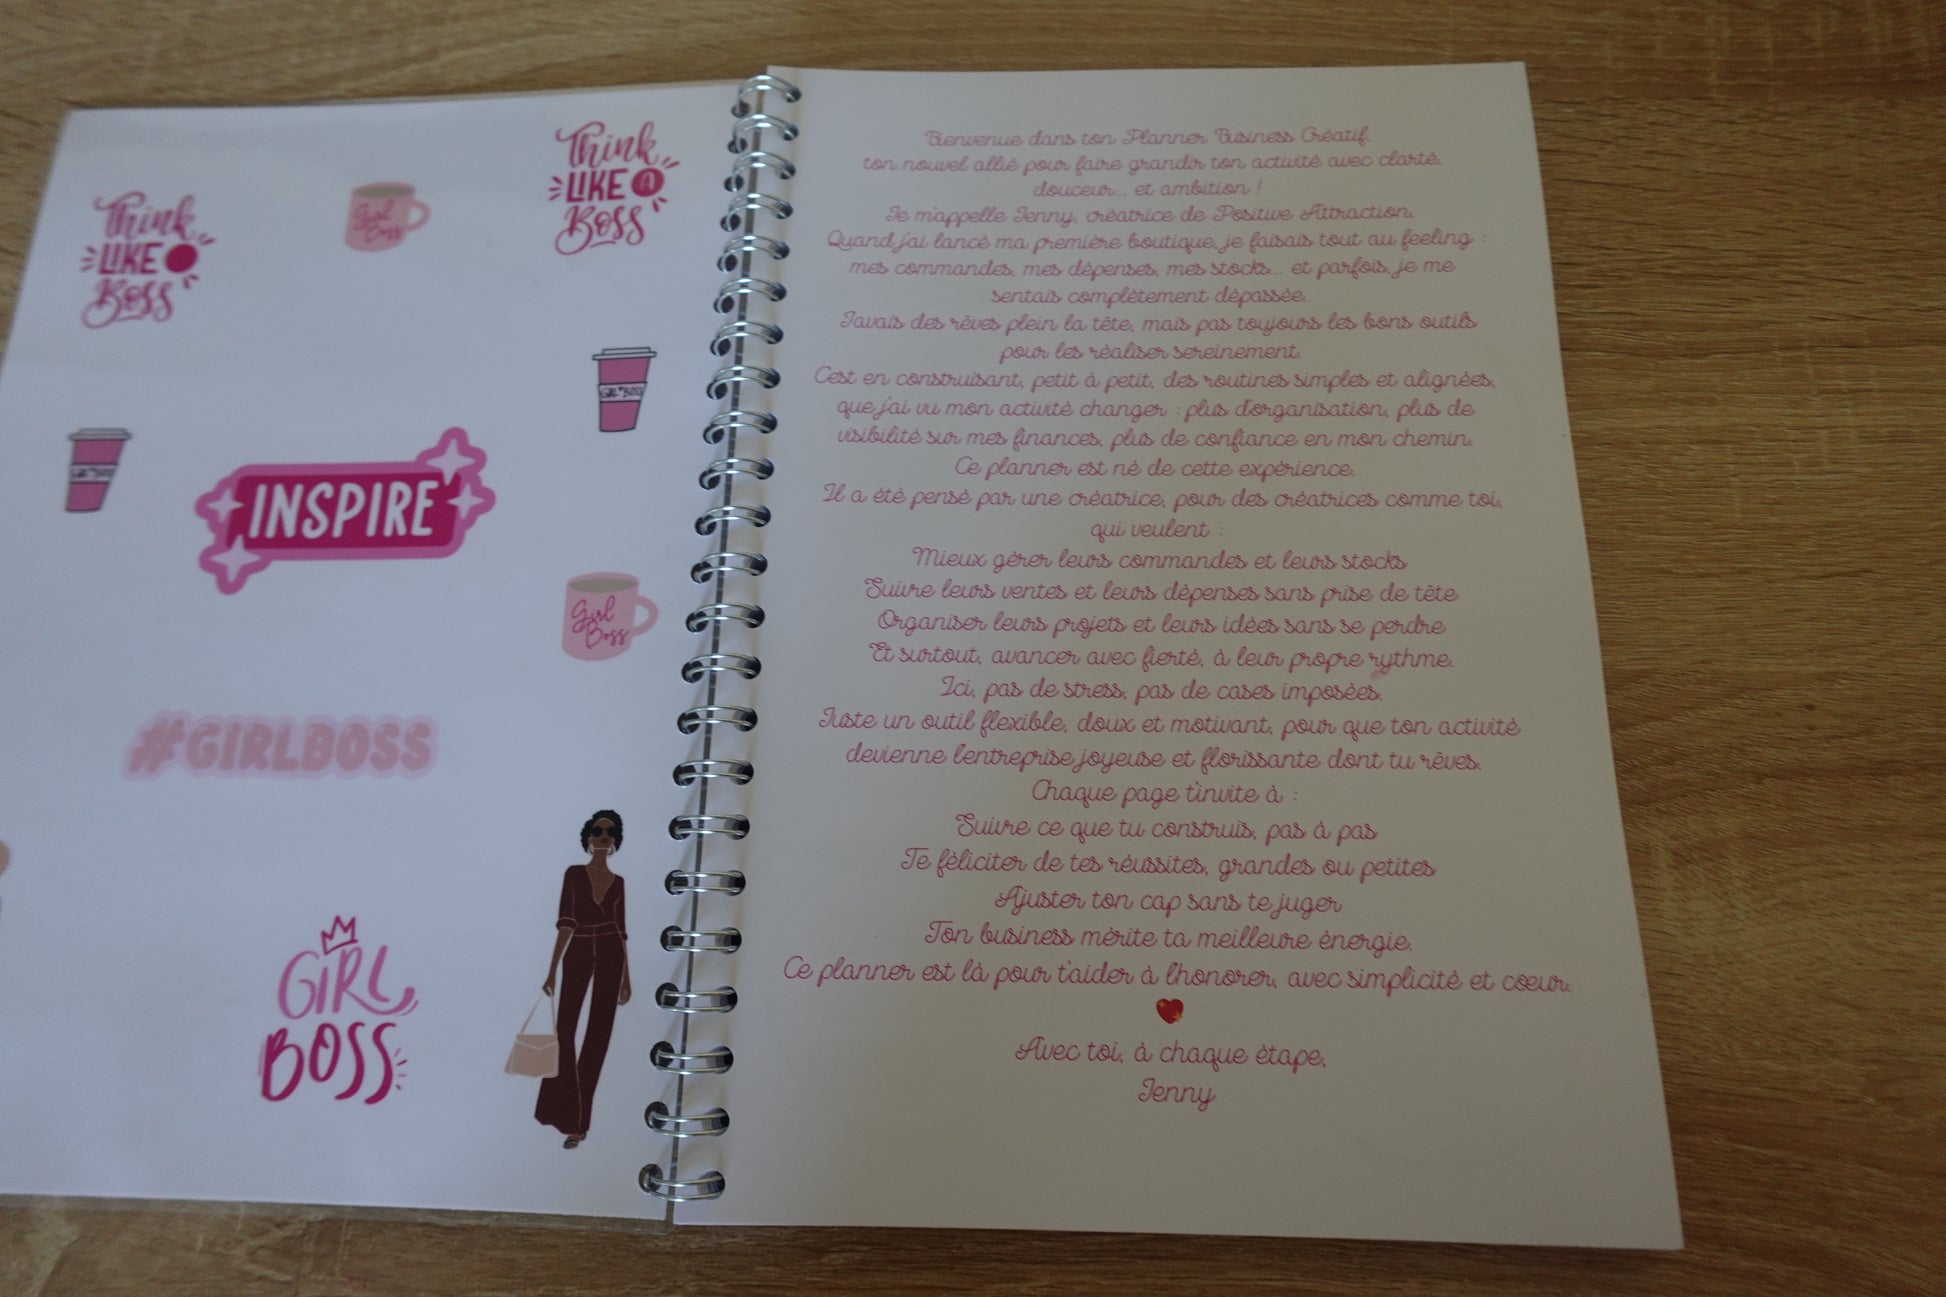 Think
LIKE
Boss
Girl
Boss
Think
LIKE A
Boss
GIRL BOSS
INSPIRE
Girl
Boss
#GIRLBOSS
GIRL
BOSS
Bienvenue dans ton Planner Business Créatif,
ton nouvel allié pour faire grandir ton activité avec clarté,
douceur... et ambition !
Je m'appelle Jenny, créatrice de Positive Attraction.
Quand j'ai lancé ma première boutique, je faisais tout au feeling :
mes commandes, mes dépenses, mes stocks... et parfois, je me
sentais complètement dépassée.
J'avais des rêves plein la tête, mais pas toujours les bons outils
pour les réaliser sereinement.
C'est en construisant, petit à petit, des routines simples et alignées,
que j'ai vu mon activité changer : plus d'organisation, plus de
visibilité sur mes finances, plus de confiance en mon chemin.
Ce planner est né de cette expérience.
Il a été pensé par une créatrice, pour des créatrices comme toi,
qui veulent :
Mieux gérer leurs commandes et leurs stocks
Suivre leurs ventes et leurs dépenses sans prise de tête
Organiser leurs projets et leurs idées sans se perdre
Et surtout, avancer avec fierté, à leur propre rythme.
Ici, pas de stress, pas de cases imposées.
Juste un outil flexible, doux et motivant, pour que ton activité
devienne l'entreprise joyeuse et florissante dont tu rêves.
Chaque page t'invite à :
Suivre ce que tu construis, pas à pas
Te féliciter de tes réussites, grandes ou petites
Ajuster ton cap sans te juger
Ton business mérite ta meilleure énergie.
Ce planner est là pour t'aider à l'honorer, avec simplicité et cœur.
Avec toi, à chaque étape,
Jenny